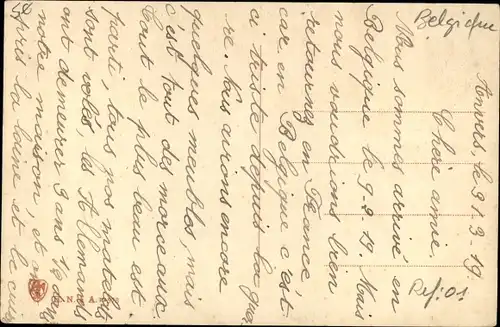 Belgique
Anvers, le 31-3-19.
Chère amie.
Nous sommes arrivé en
Belgique le 9-2-19. Mais
nous voudrions bien
retourner en France
car en Belgique c'est
ci triste depuis la guer
re. Nous avions encore
quelques meubles, mais
c'est tout des morceaux
tout le plus beau est
parti, tous nos matelas
sont volés, les Allemands
ont demeurer 3 ans 1/2 dans
notre maison, et on
pris la laine et le cuiv
Ref: 01